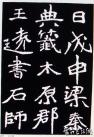 日戊申梁秦
典籤木原郡
王遠書石師